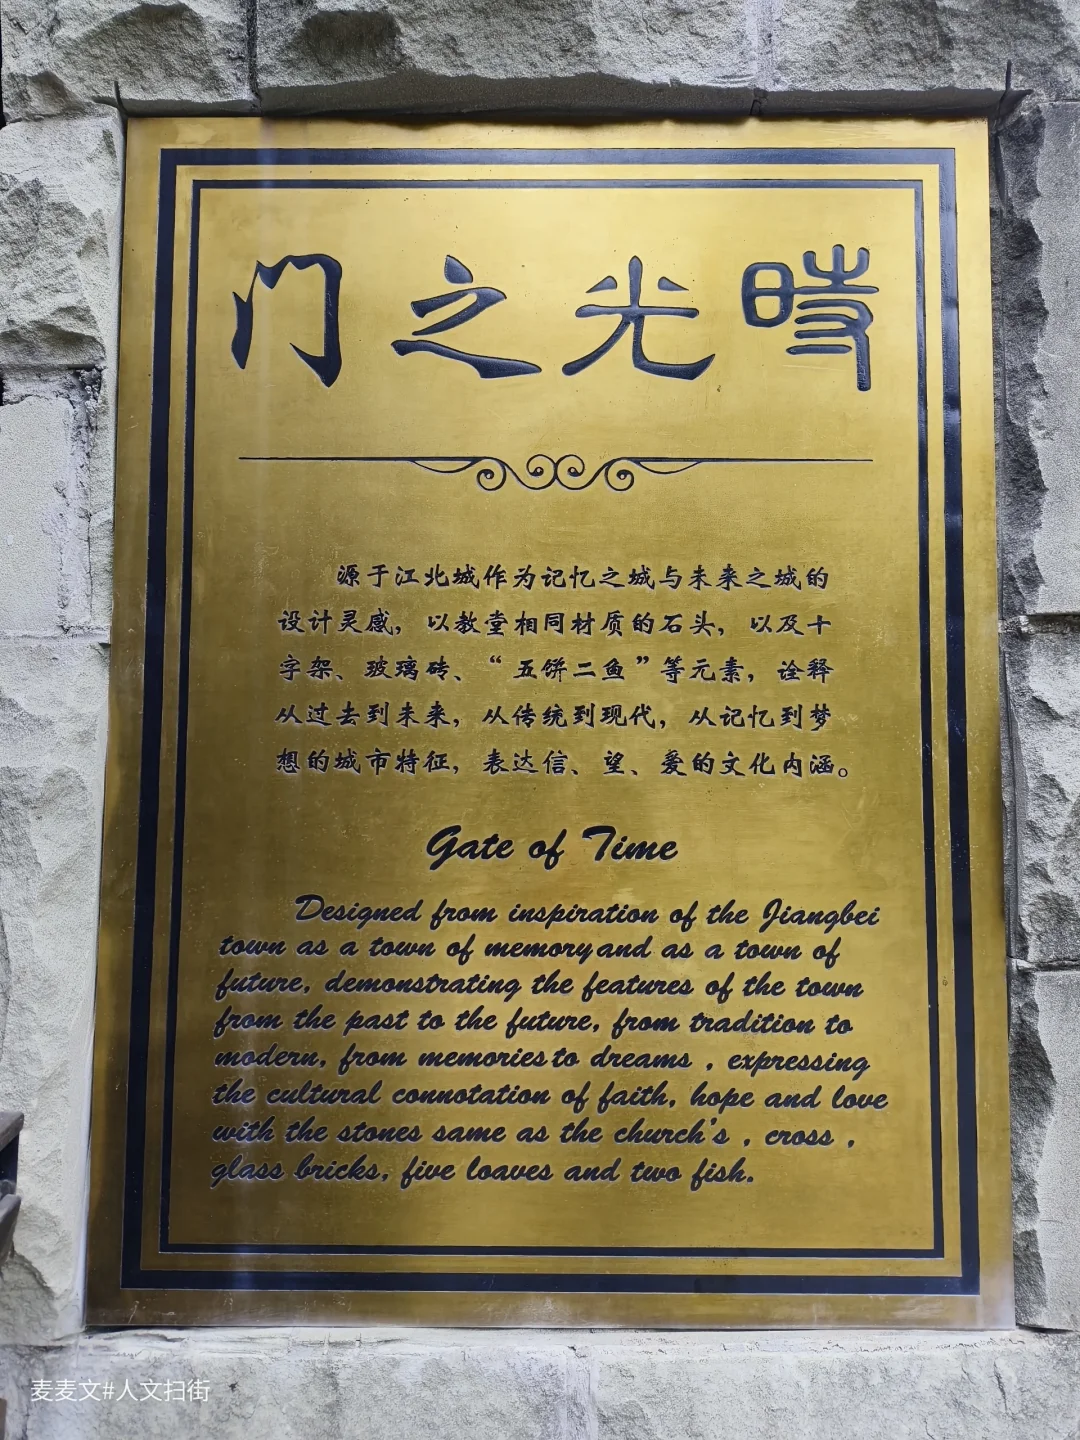 時光之门
源于江北城作为记忆之城与未来之城的
设计灵感，以教堂相同材质的石头，以及十
字架、玻璃砖、“五饼二鱼”等元素，诠释
从过去到未来，从传统到现代，从记忆到梦
想的城市特征，表达信、望、爱的文化内涵。
Gate of Time
Designed from inspiration of the Jiangbei
town as a town of memory and as a town of
future, demonstrating the features of the town
from the past to the future, from tradition to
modern, from memories to dreams , expressing
the cultural connotation of faith, hope and love
with the stones same as the church's , cross ,
glass bricks, five loaves and two fish.
麦麦文#人文扫街